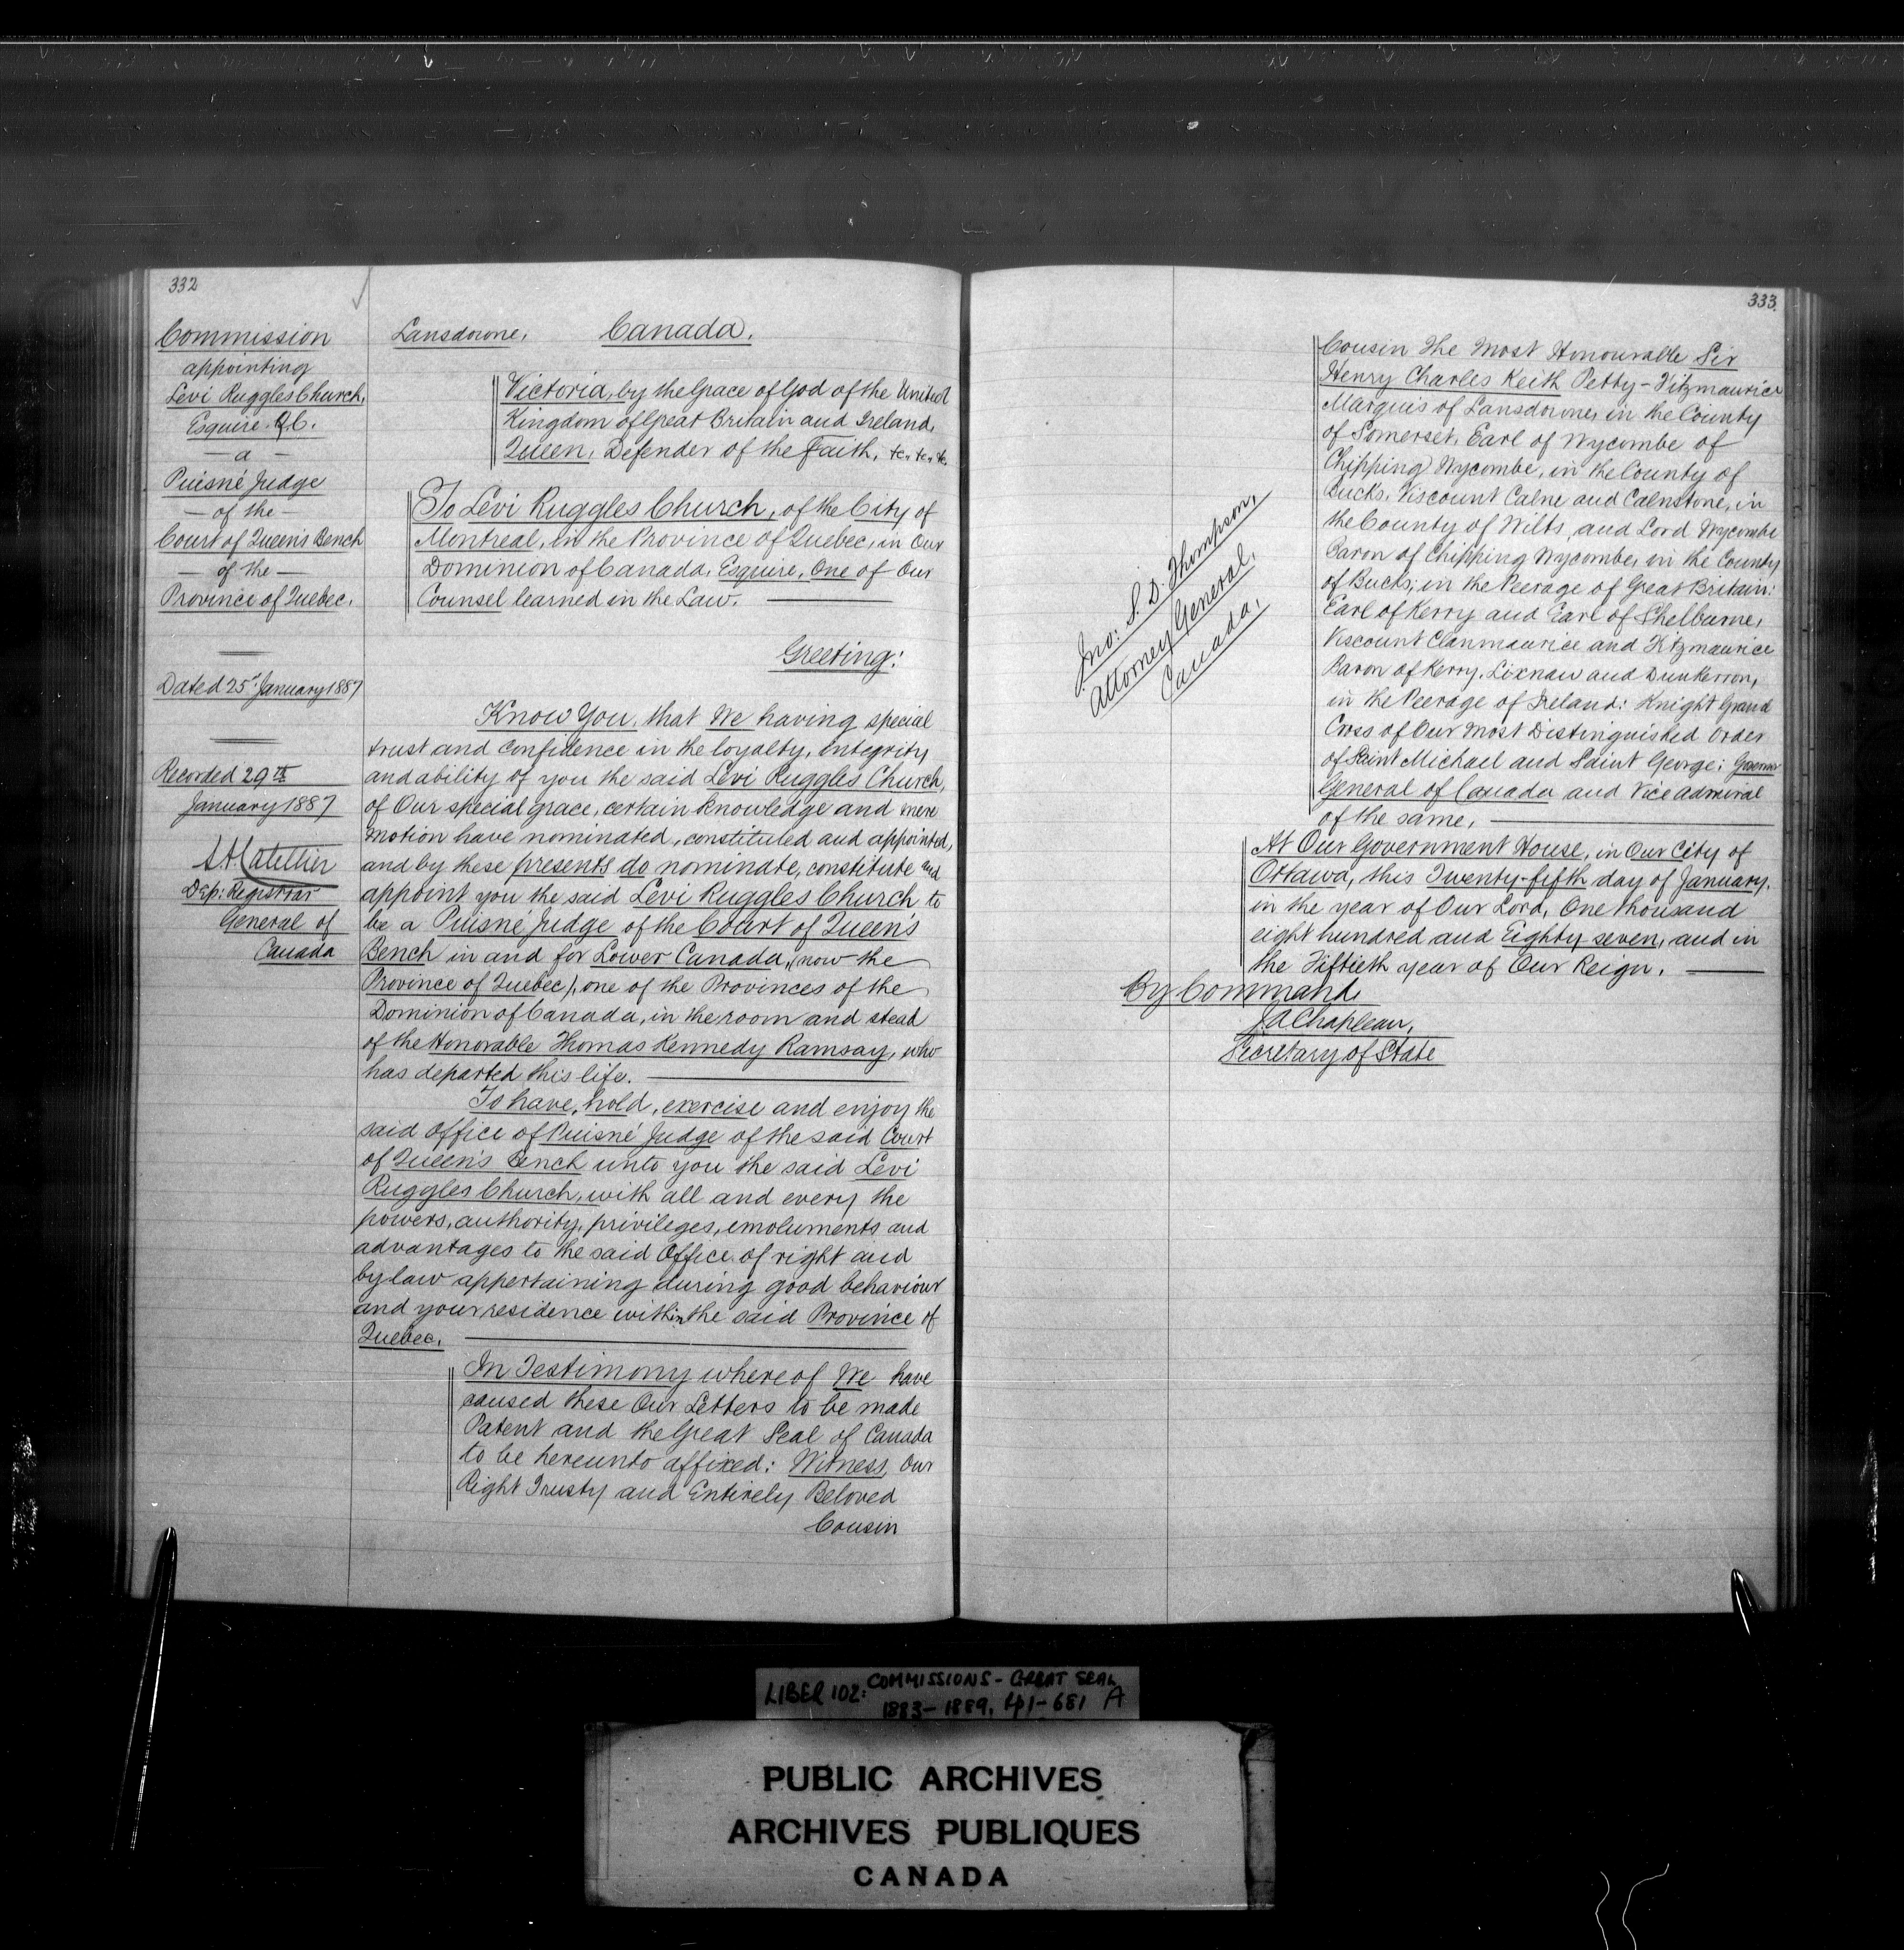 332
Commission
appointing
Levi Ruggles Church,
Esquire. Q.C.
— a —
Puisné Judge
— of the —
Court of Queen's Bench
— of the —
Province of Quebec.
Dated 25th January 1887
Recorded 29th
January 1887
Dep: Registrar
General of
Canada
Lansdowne. Canada.
Victoria, by the Grace of God of the United
Kingdom of Great Britain and Ireland,
Queen, Defender of the Faith, &c, &c, &c.
To Levi Ruggles Church, of the City of
Montreal, in the Province of Quebec, in Our
Dominion of Canada, Esquire, One of Our
Counsel learned in the Law.
Greeting:
Know You, that We having special
trust and confidence in the loyalty, integrity
and ability of you the said Levi Ruggles Church,
of Our special grace, certain knowledge and mere
motion have nominated, constituted and appointed,
and by these presents do nominate, constitute and
appoint you the said Levi Ruggles Church to
be a Puisné Judge of the Court of Queen's
Bench in and for Lower Canada, (now the
Province of Quebec), one of the Provinces of the
Dominion of Canada, in the room and stead
of the Honorable Thomas Kennedy Ramsay, who
has departed this life.
To have, hold, exercise and enjoy the
said Office of Puisné Judge of the said Court
of Queen's Bench unto you the said Levi
Ruggles Church, with all and every the
powers, authority, privileges, emoluments and
advantages to the said Office of right and
by law appertaining during good behaviour
and your residence within the said Province of
Quebec.
In Testimony whereof We have
caused these Our Letters to be made
Patent and the Great Seal of Canada
to be hereunto affixed: Witness, Our
Right Trusty and Entirely Beloved
Cousin
333.
Cousin The Most Honourable Sir
Henry Charles Keith Petty-Fitzmaurice
Marquis of Lansdowne, in the County
of Somerset, Earl of Wycombe of
Chipping Wycombe, in the County of
Bucks, Viscount Calne and Calnstone, in
the County of Wilts, and Lord Wycombe
Baron of Chipping Wycombe, in the County
of Bucks, in the Peerage of Great Britain:
Earl of Kerry and Earl of Shelburne,
Viscount Clanmaurice and Fitzmaurice
Baron of Kerry, Lixnaw and Dunkerron,
in the Peerage of Ireland: Knight Grand
Cross of Our Most Distinguished Order
of Saint Michael and Saint George: Governor
General of Canada and Vice Admiral
of the same.
Jno: S. D. Thompson,
Attorney General,
Canada.
At Our Government House, in Our City of
Ottawa, this Twenty-fifth day of January,
in the year of Our Lord, One thousand
eight hundred and Eighty seven, and in
the Fiftieth year of Our Reign.
By Command,
J. A. Chapleau,
Secretary of State
LIBER 102: COMMISSIONS - GREAT SEAL
1883-1889, pp1-681 A
PUBLIC ARCHIVES
ARCHIVES PUBLIQUES
CANADA